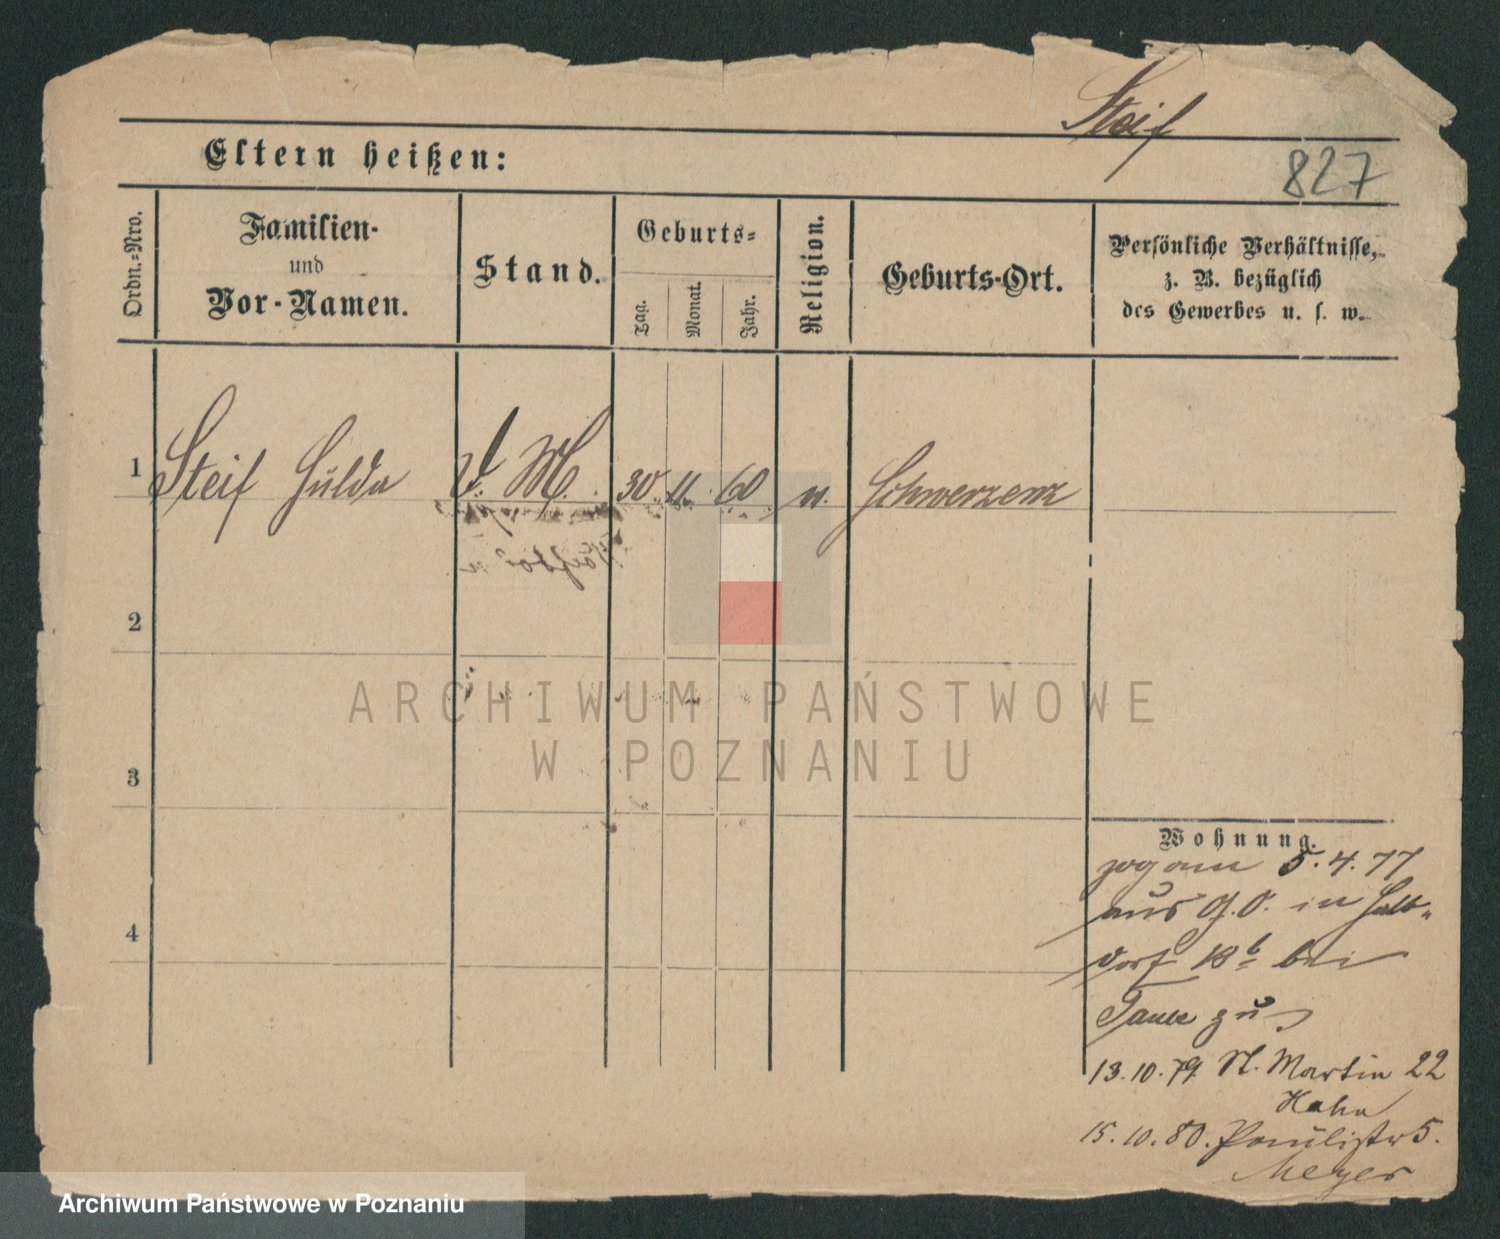 Steif
827
Eltern heißen:
Ordn.=Nro.
Familien-
und
Vor-Namen.
Stand.
Geburts=
Tag.
Monat.
Jahr.
Religion.
Geburts-Ort.
Persönliche Verhältnisse,
z. B. bezüglich
des Gewerbes u. s. w.
1 Steif Hulda d. M. 30. 11. 60 Schwersenz
2
3
4
ARCHIWUM PAŃSTWOWE
W POZNANIU
Wohnung.
zog am 5.4.77
aus G.O. in Halb-
dorf 18b bei
zu
13.10.79. St. Martin 22
Hahn
15.10.80. Paulistr 5.
Meyer
Archiwum Państwowe w Poznaniu